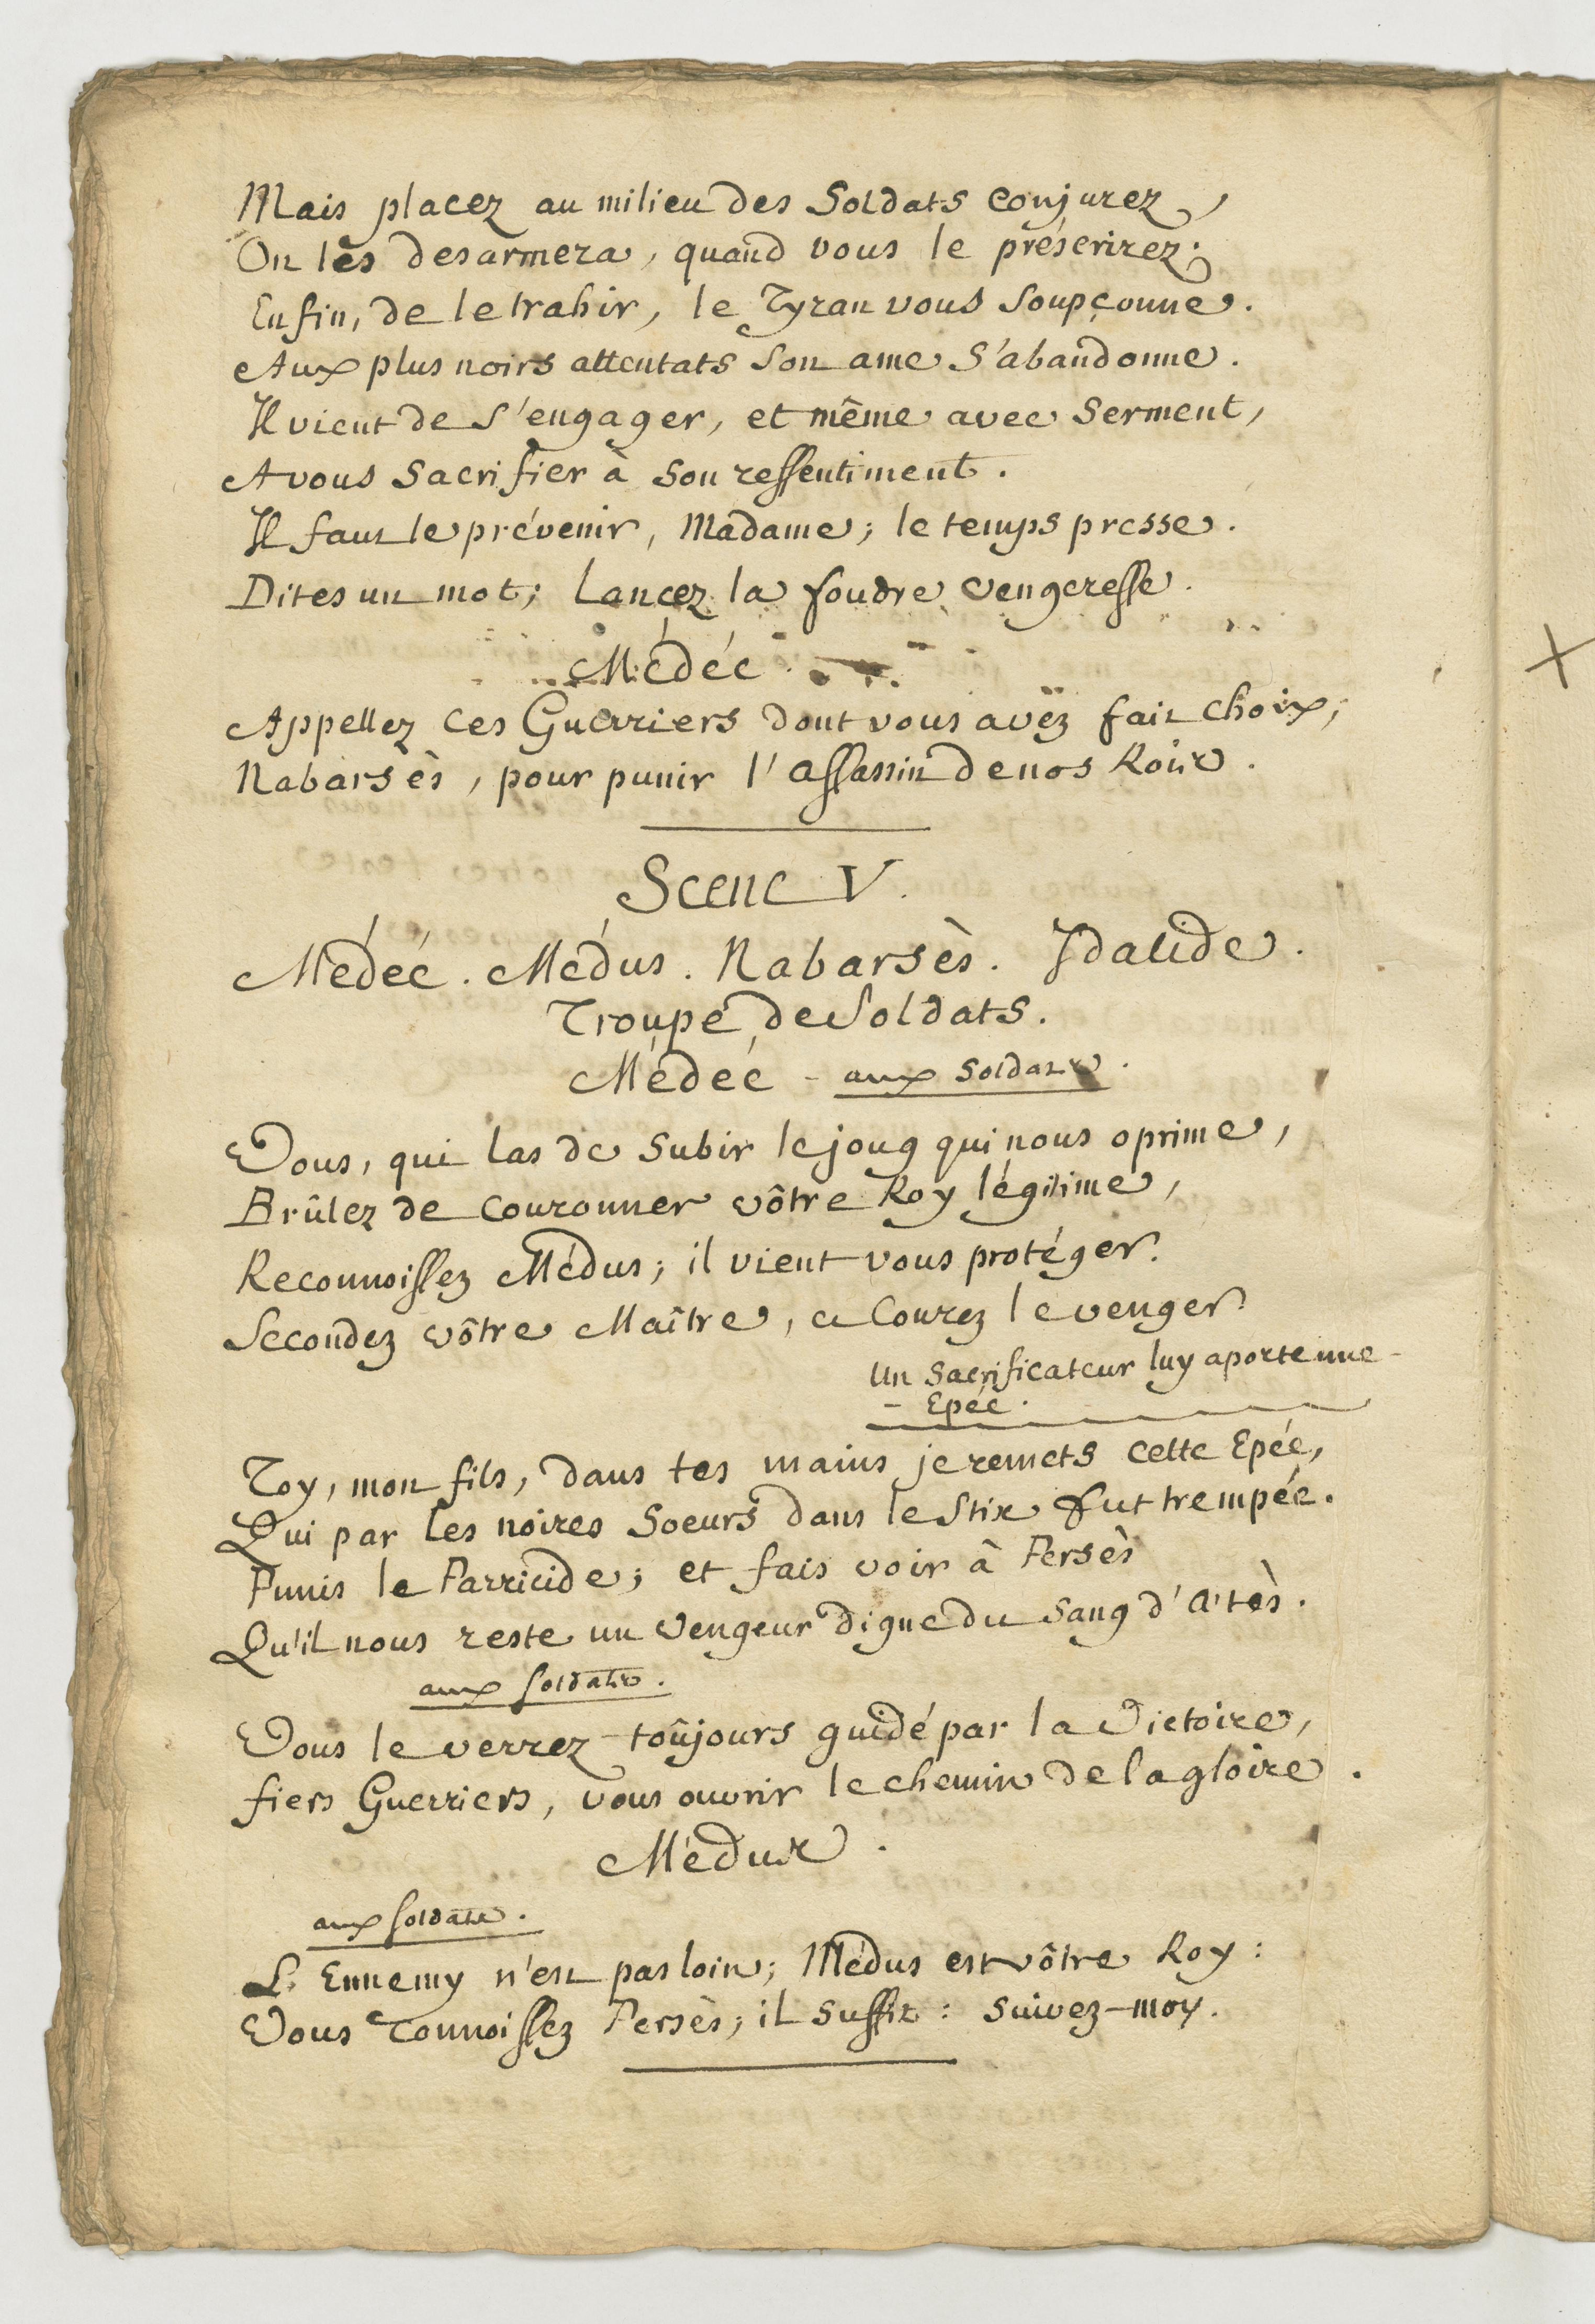 Mais placez au milieu des Soldats conjurez,
On les desarmera, quand vous le préscrirez;
Enfin, de le trahir, le Tyran vous soupçonne.
Aux plus noirs attentats son ame s'abandonne.
Il vient de s'engager, et même avec serment,
A vous sacrifier à son ressentiment.
Il faut le prévenir, Madame; le temps presse.
Dites un mot; Lancez la foudre vengeresse.
Médée.
Appellez ces Guerriers dont vous avëz fait choix;
Nabarsès, pour punir l'assassin de nos Rois.
Scene V.
Médée. Médus. Nabarsès. Idalide.
Troupe de Soldats.
Médée - aux soldats.
Vous, qui las de subir le joug qui nous oprime,
Brûlez de couronner vôtre Roy légitime,
Reconnoissez Médus; il vient vous protéger.
Secondez vôtre Maître, et courez le venger.
Un Sacrificateur luy aporte une
- Epée.
Toy, mon fils, dans tes mains je remets cette Epée,
Qui par les noires Soeurs dans le Stix fut trempée.
Punis le Parricide; et fais voir à Persès
Qu'il nous reste un vengeur digne du sang d'
aux soldats.
Vous le verrez toûjours guidé par la Victoire,
fiers Guerriers, vous ouvrir le chemin de la gloire.
Médus.
aux soldats.
L'Ennemy n'est pas loin; Médus est vôtre Roy:
Vous connoissez Persès; il suffit: suivez-moy.